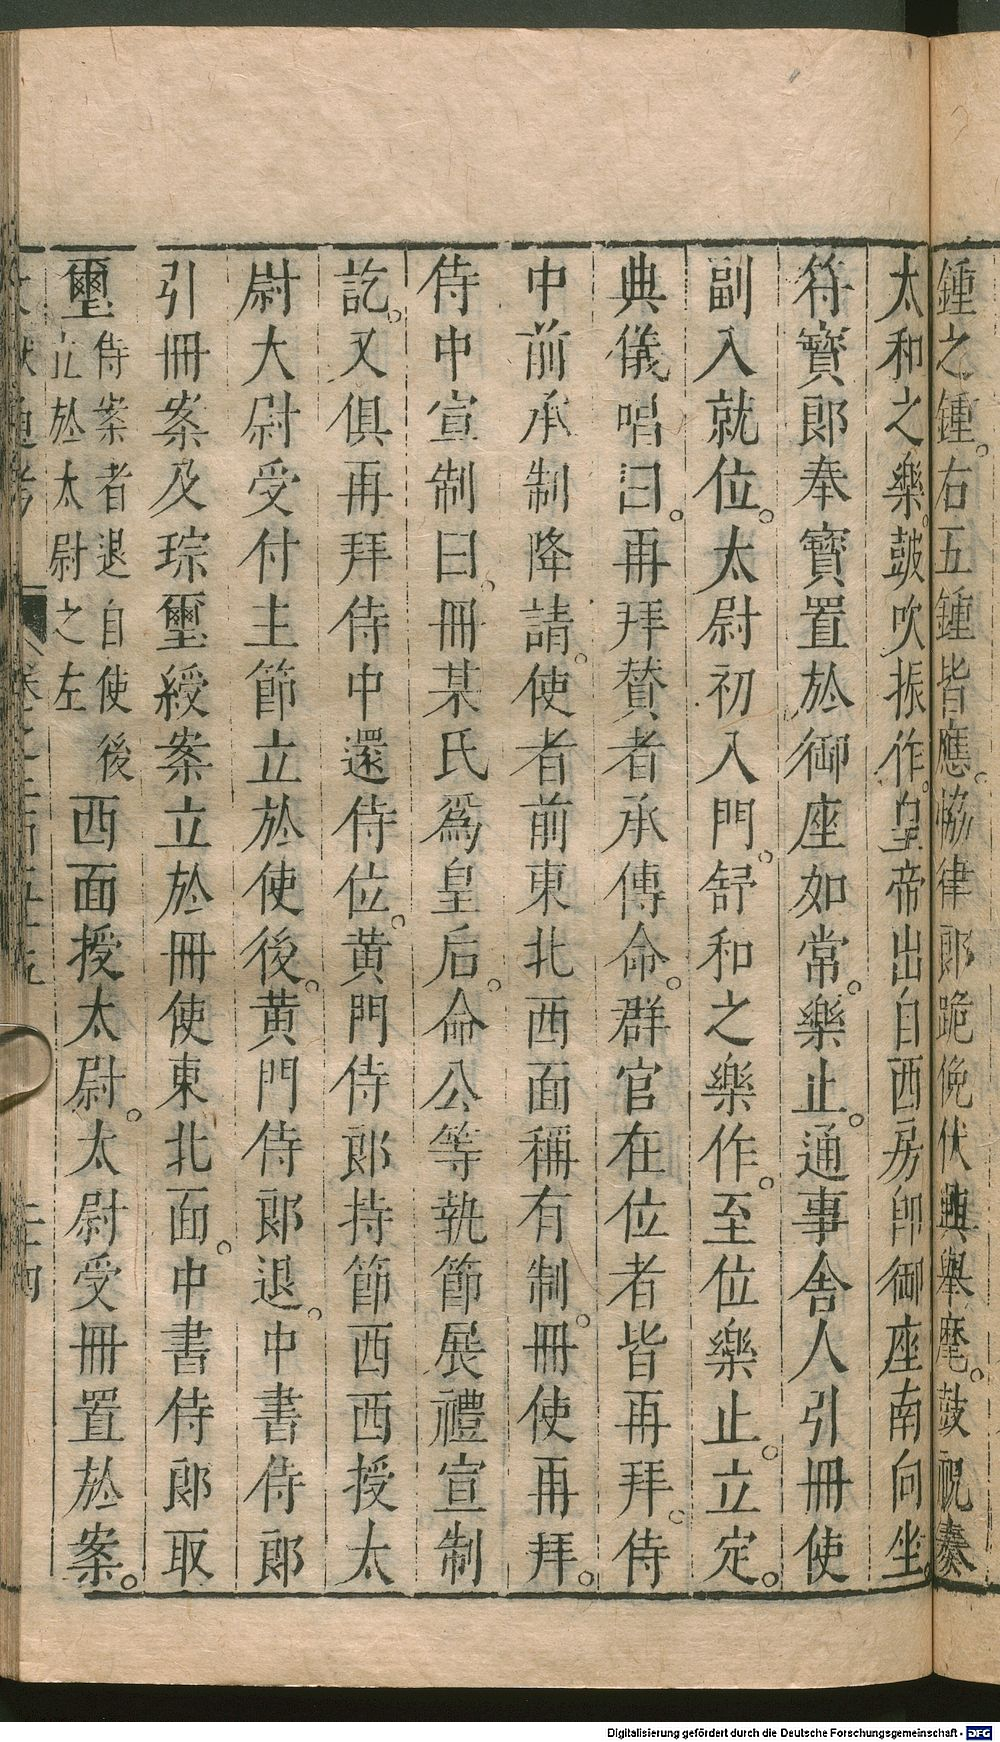 鍾之鍾。右五鍾皆應。協律郎跪俛伏興舉麾。鼓柷奏
太和之樂。鼓吹振作。皇帝出自西房卽御座南向坐。
符寶郎奉寶置於御座如常。樂止。通事舍人引冊使
副入就位。太尉初入門。舒和之樂作。至位樂止。立定。
典儀唱曰。再拜贊者承傳命。群官在位者皆再拜。侍
中前承制降請。使者前東北西面稱有制。冊使再拜。
侍中宣制曰。冊某氏爲皇后。命公等執節展禮宣制
訖。又俱再拜侍中還侍位。黃門侍郎持節西西授太
尉大尉受付主節立於使後。黃門侍郎退。中書侍郎
引冊案及琮璽綬案立於冊使東北面。中書侍郎取
璽侍案者退自使後立於太尉之左西面授太尉。太尉受冊置於案。
Digitalisierung gefördert durch die Deutsche Forschungsgemeinschaft - DFG